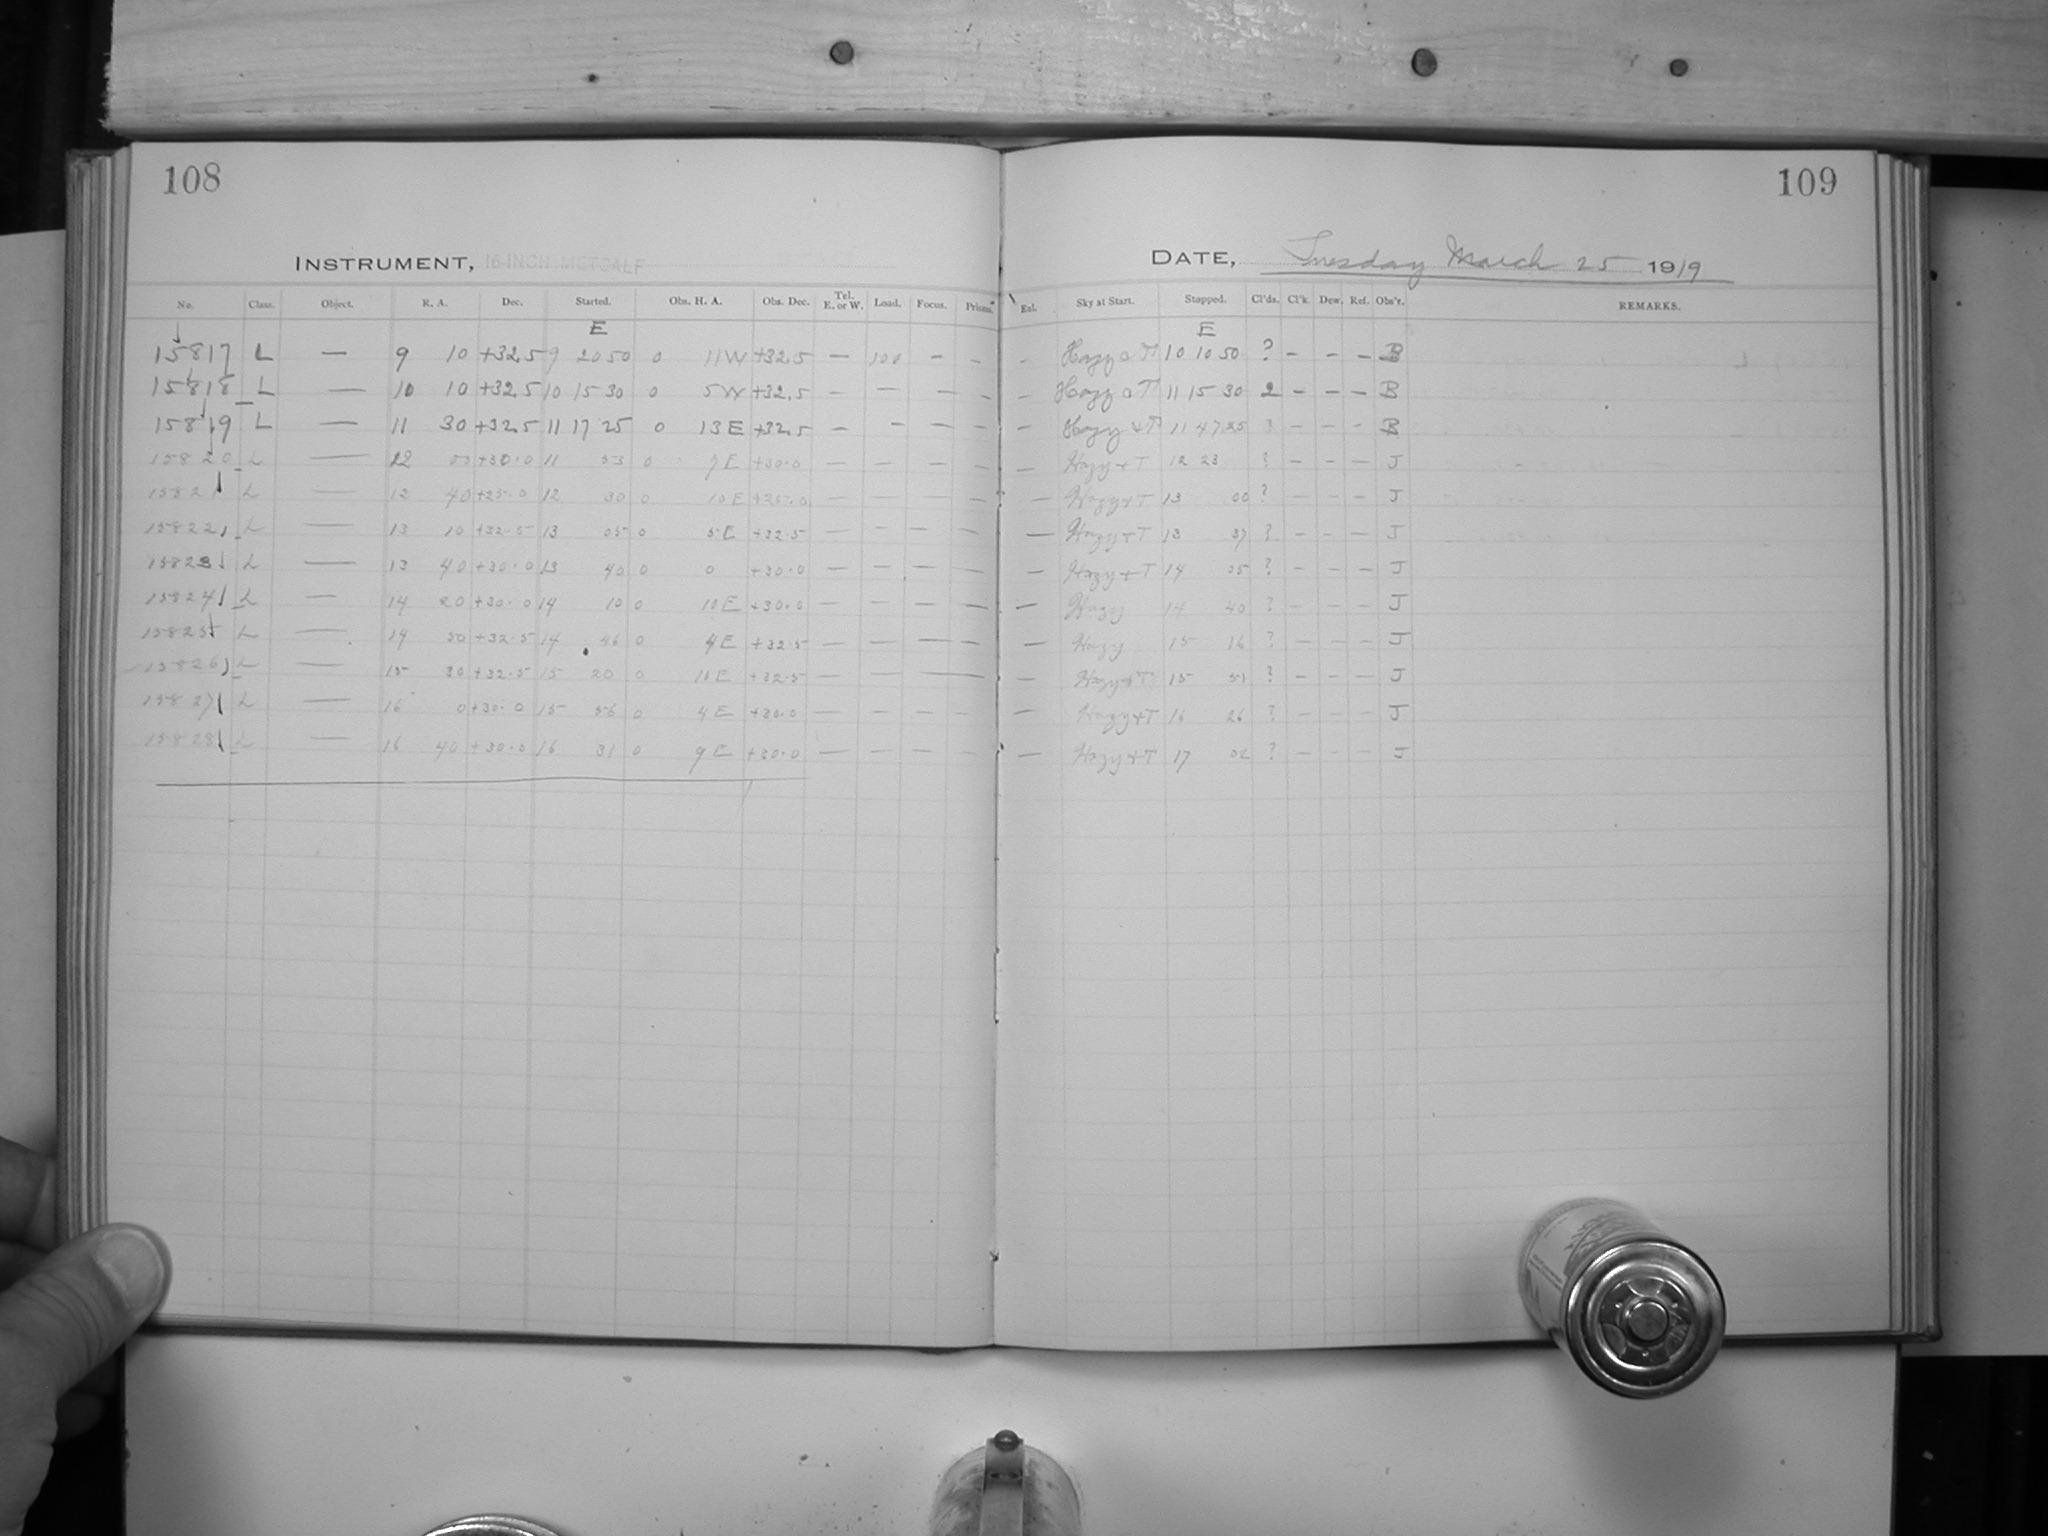 108
109
INSTRUMENT, 16-INCH METCALF
DATE, Tuesday March 25 1919
No. Class. Object. R. A. Dec. Started. Obs. H. A. Obs. Dec. Tel. E. or W. Load. Focus. Prisms. Enl. Sky at Start. Stopped. Cl'ds. Cl'k. Dew. Ref. Obs'r. REMARKS.
E E
15817 L — 9 10 +32.5 9 20 50 0 11 W +32.5 — 100 — — — Hazy 10 10 50 ? — — — B
15818 L — 10 10 +32.5 10 15 30 0 5 W +32.5 — — — — — Hazy 11 15 30 2 — — — B
15819 L — 11 30 +32.5 11 17 25 0 13 E +32.5 — — — — — Hazy + T 11 47 25 ? — — — B
15820 L — 12 00 +30.0 11 53 0 7 E +30.0 — — — — — Hazy + T 12 23 ? — — — J
15821 L — 12 40 +25.0 12 30 0 10 E +25.0 — — — — — Hazy + T 13 00 ? — — — J
15822 L — 13 10 +32.5 13 05 0 5 E +32.5 — — — — — Hazy + T 13 37 ? — — — J
15823 L — 13 40 +30.0 13 40 0 0 +30.0 — — — — — Hazy + T 14 05 ? — — — J
15824 L — 14 20 +30.0 14 10 0 10 E +30.0 — — — — — Hazy 14 40 ? — — — J
15825 L — 14 50 +32.5 14 46 0 4 E +32.5 — — — — — Hazy 15 16 ? — — — J
15826 L — 15 30 +32.5 15 20 0 10 E +32.5 — — — — — Hazy + T 15 51 ? — — — J
15827 L — 16 0 +30.0 15 56 0 4 E +30.0 — — — — — Hazy + T 16 26 ? — — — J
15828 L — 16 40 +30.0 16 31 0 9 E +30.0 — — — — — Hazy + T 17 02 ? — — — J